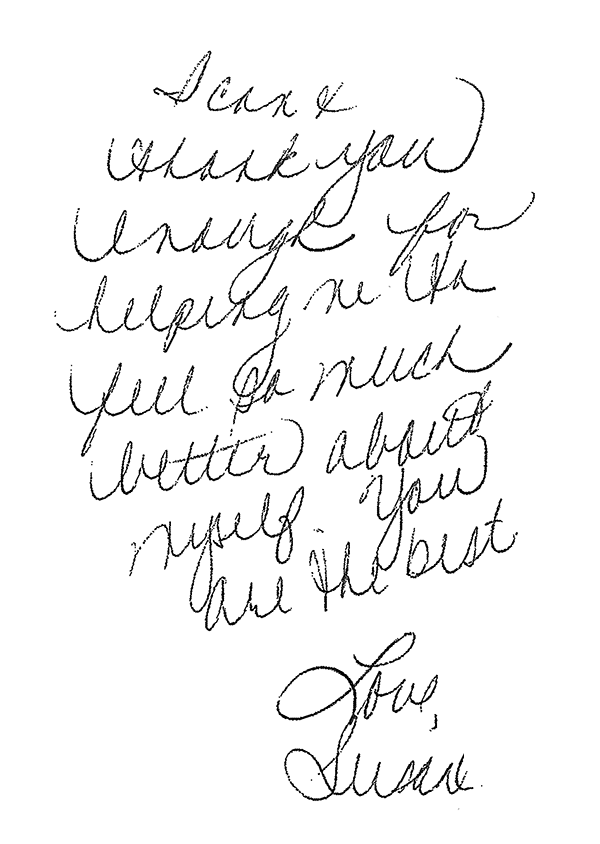 I can't
thank you
enough for
helping me to
feel so much
better about
myself. You
are the best
Love,
Susan